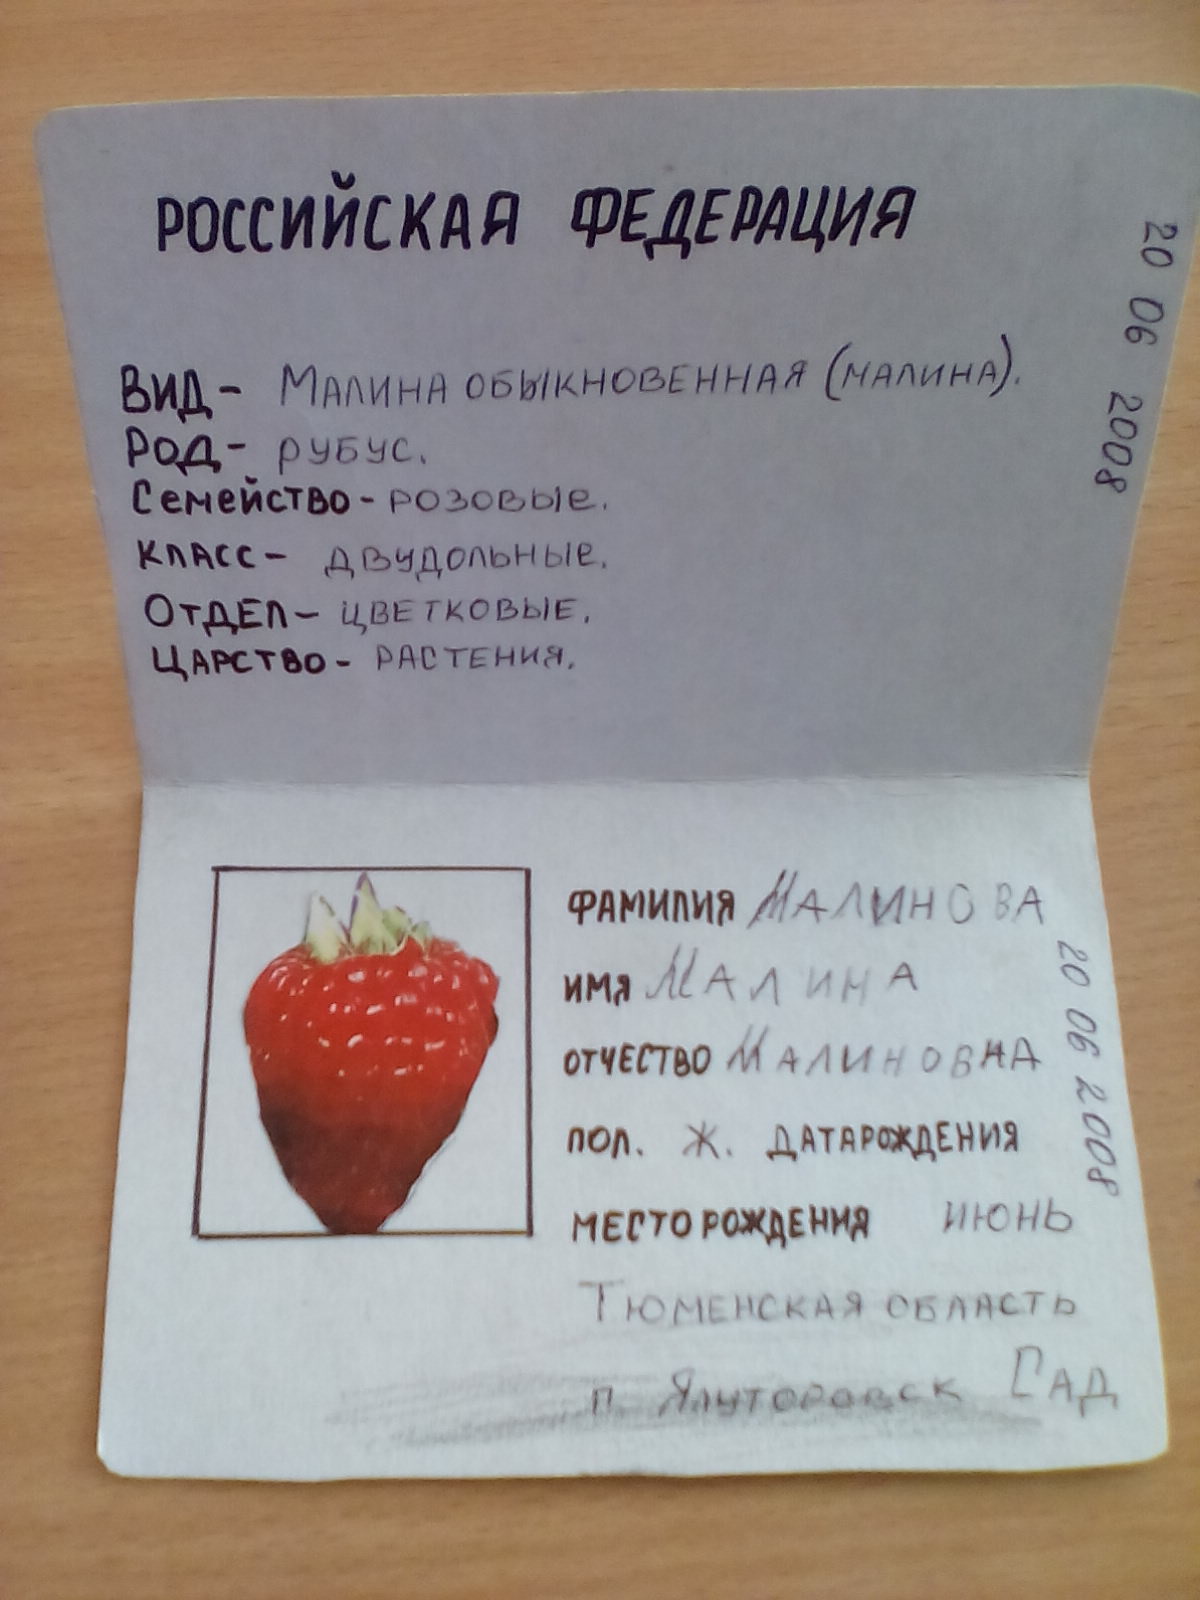 РОССИЙСКАЯ ФЕДЕРАЦИЯ
20 06 2008
Вид - Малина обыкновенная (малина).
Род - рубус.
Семейство - розовые.
Класс - двудольные.
Отдел - цветковые.
Царство - растения.
ФАМИЛИЯ МАЛИНОВА
ИМЯ МАЛИНА
ОТЧЕСТВО МАЛИНОВНА
20 06 2008
ПОЛ. Ж. ДАТАРОЖДЕНИЯ
МЕСТО РОЖДЕНИЯ ИЮНЬ
ТЮМЕНСКАЯ ОБЛАСТЬ
п. Ялуторовск САД